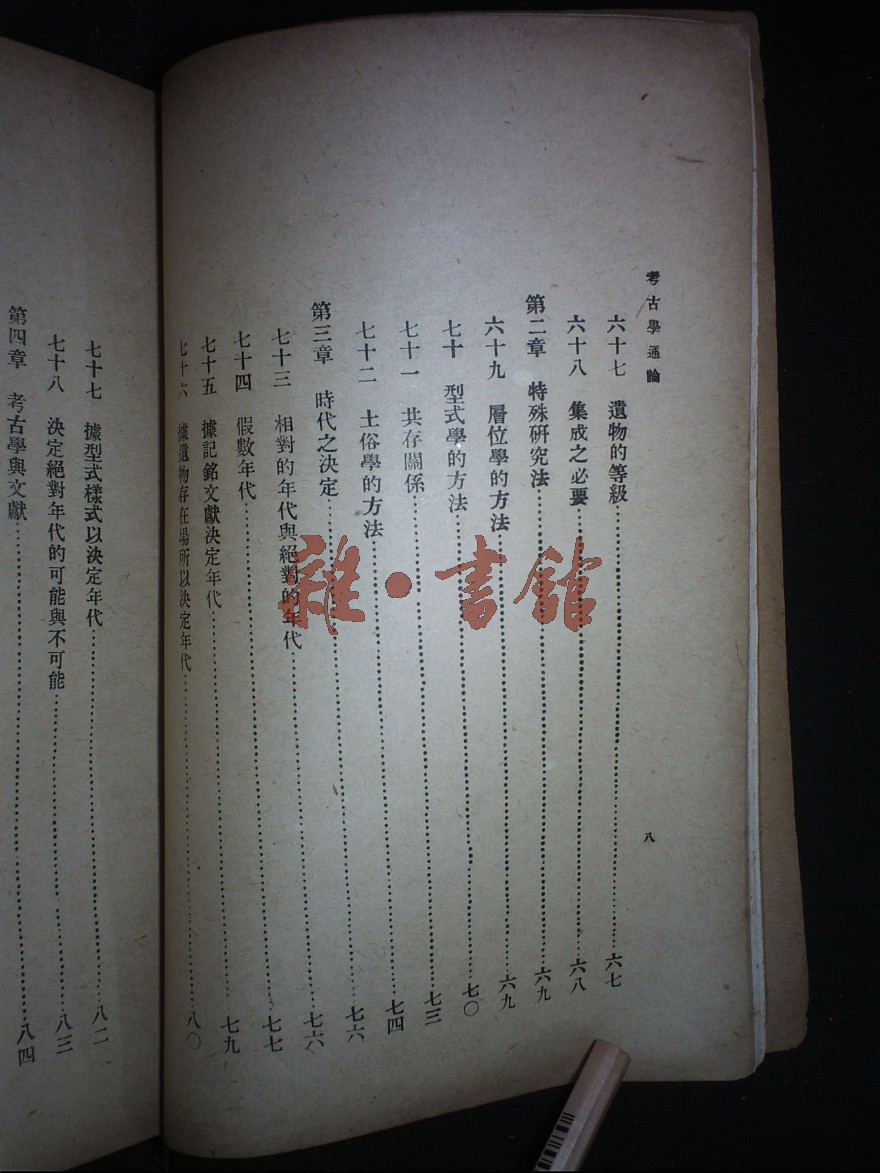 考古學通論
八
六十七 遺物的等級……六七
六十八 集成之必要……六八
第二章 特殊研究法……六九
六十九 層位學的方法……六九
七十 型式學的方法……七〇
七十一 共存關係……七三
七十二 土俗學的方法……七四
第三章 時代之決定……七六
七十三 相對的年代與絕對的年代……七六
七十四 假數年代……七七
七十五 據記銘文獻決定年代……七九
七十六 據遺物存在場所以決定年代……八〇
七十七 據型式樣式以決定年代……八二
七十八 決定絕對年代的可能與不可能……八三
第四章 考古學與文獻……八四
雜·書館